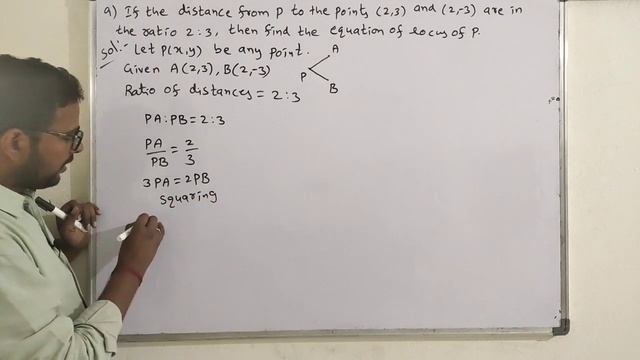 9) If the distance from P to the points (2,3) and (2,-3) are in
the ratio 2:3, then find the equation of locus of P.
Sol:- Let P(x,y) be any point.
Given A(2,3), B(2,-3)
Ratio of distances = 2:3
A
P
B
PA:PB = 2:3
PA/PB = 2/3
3PA = 2PB
squaring